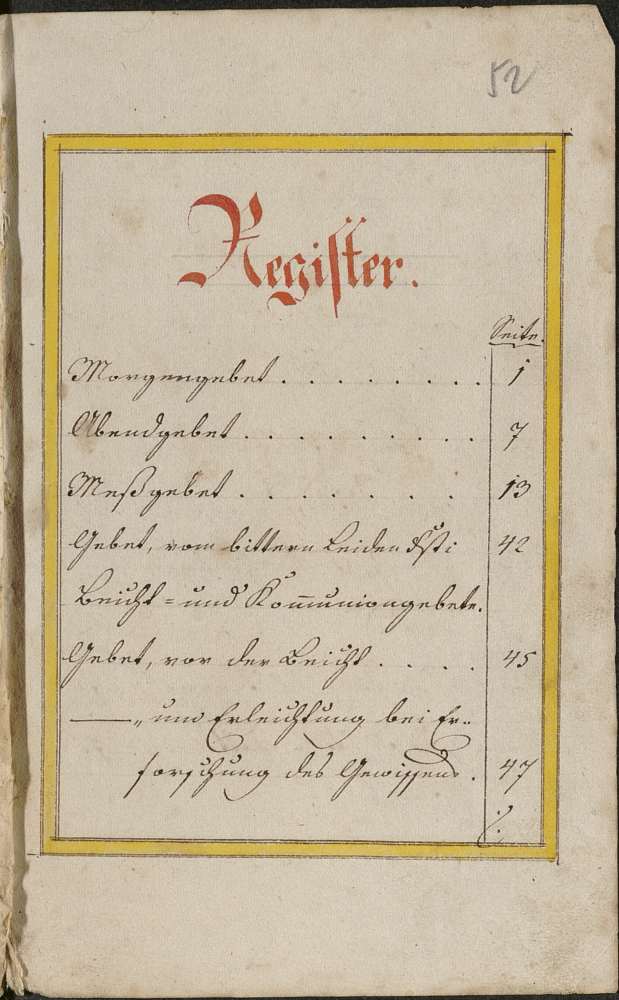 52
Register.
Seite.
Morgengebet . . . . . . . . 1
Abendgebet . . . . . . . . . 7
Meßgebet . . . . . . . 13
Gebet, vom bittern Leiden Xsti 42
Beicht- und Kom̄uniongebete.
Gebet, vor der Beicht . . . . 45
—„ um Erleichtung bei Er-
forschung des Gewissens . 47